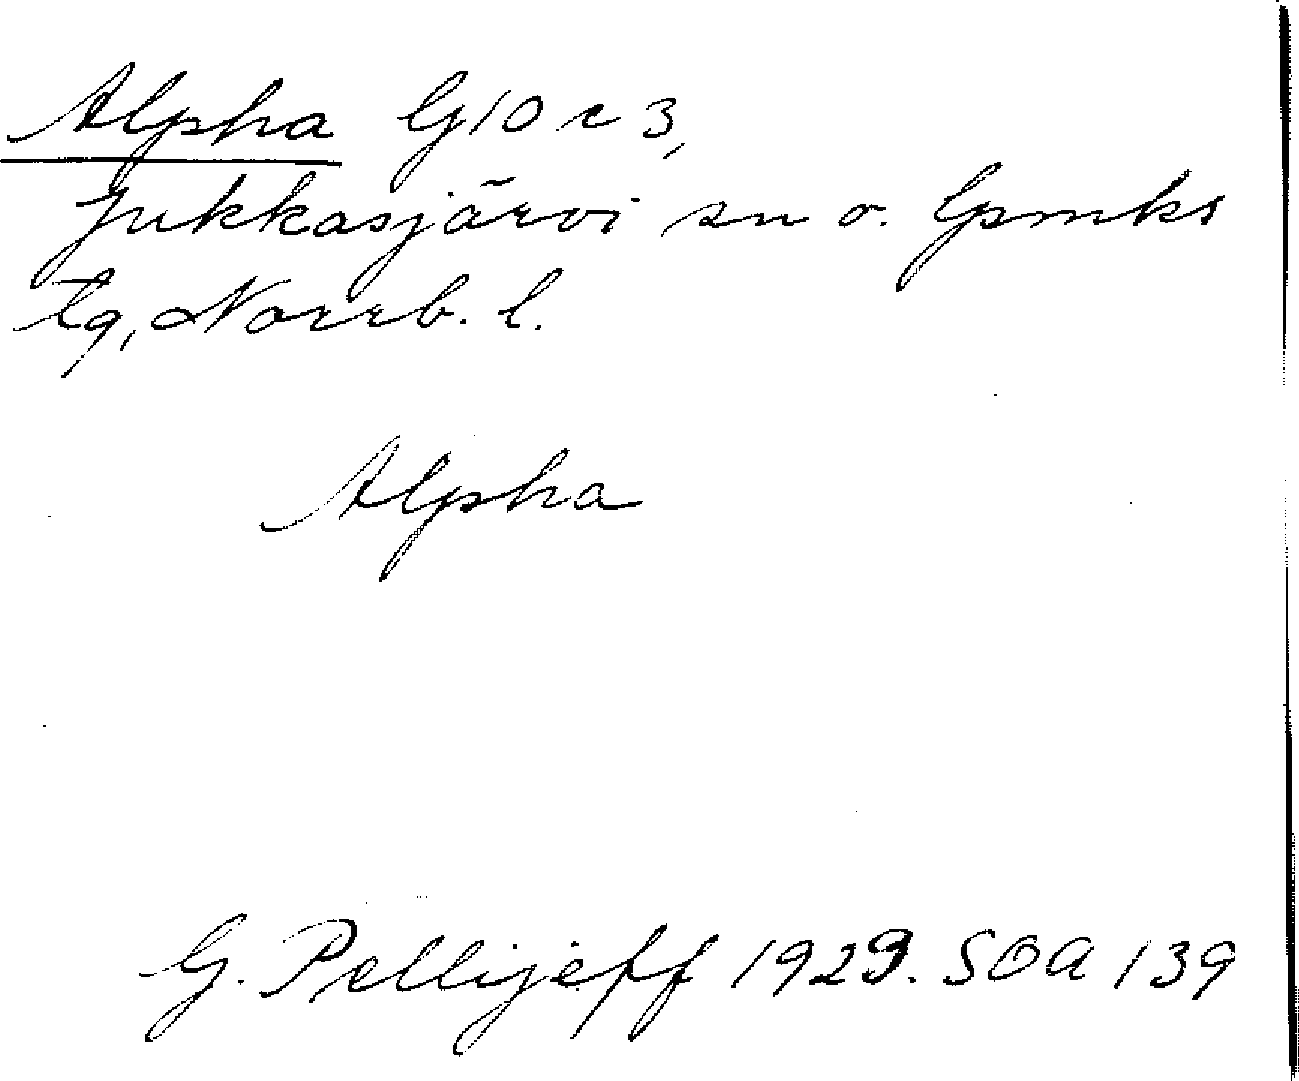 Alpha G10 c 3,
Jukkasjärvi sn o. Gsmks
tg, Norrb. l.
Alpha
G. Pellijeff 1929. SOA 139